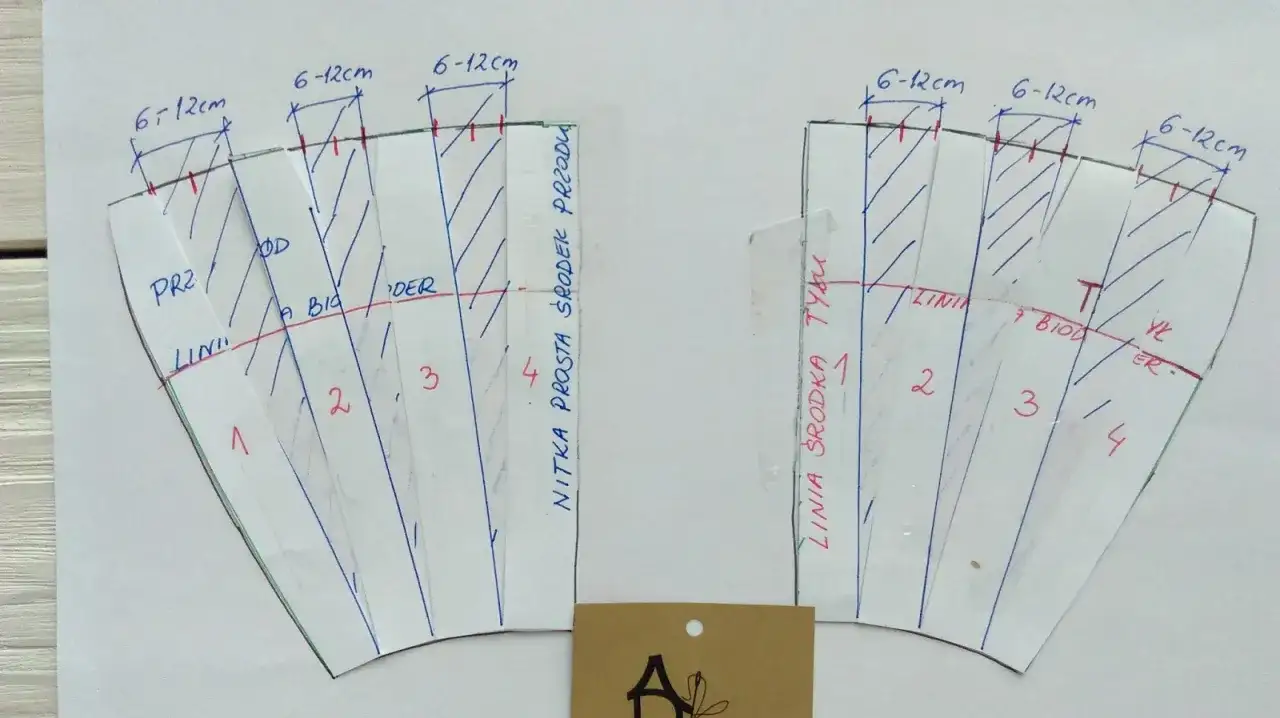 6-12cm
6-12cm
6-12cm
6-12cm
6-12cm
6-12cm
PRZ
ØD
LINII
A BIO
DER
1
2
3
4
NITKA PROSTA ŚRODEK PRZODU
LINIA ŚRODKA TYŁU
LINII
BIOD
ER
T
YŁ
1
2
3
4